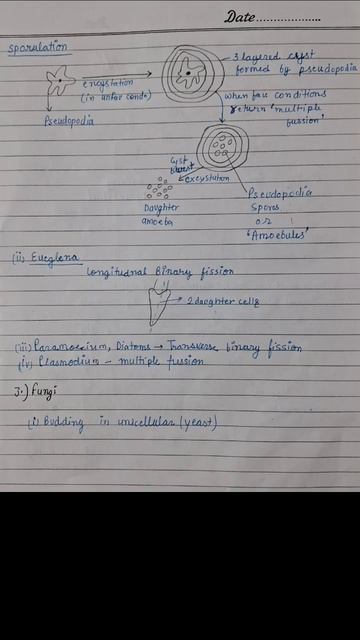 Date....................
sporulation
encystation
(in unfav conds)
Pseudopodia
3 layered cyst
formed by pseudopodia
when fav conditions
return 'multiple
fussion'
cyst
burst
excystation
Daughter
amoeba
Pseudopodia
Spores
or
'Amoebules'
(ii) Eueglena
Longitudnal Binary fission
2 daughter cells
(iii) Paramoecium, Diatoms → Transverse binary fission
(iv) Plasmodium - multiple fussion
3.) fungi
(i) Budding in unicellular (yeast)